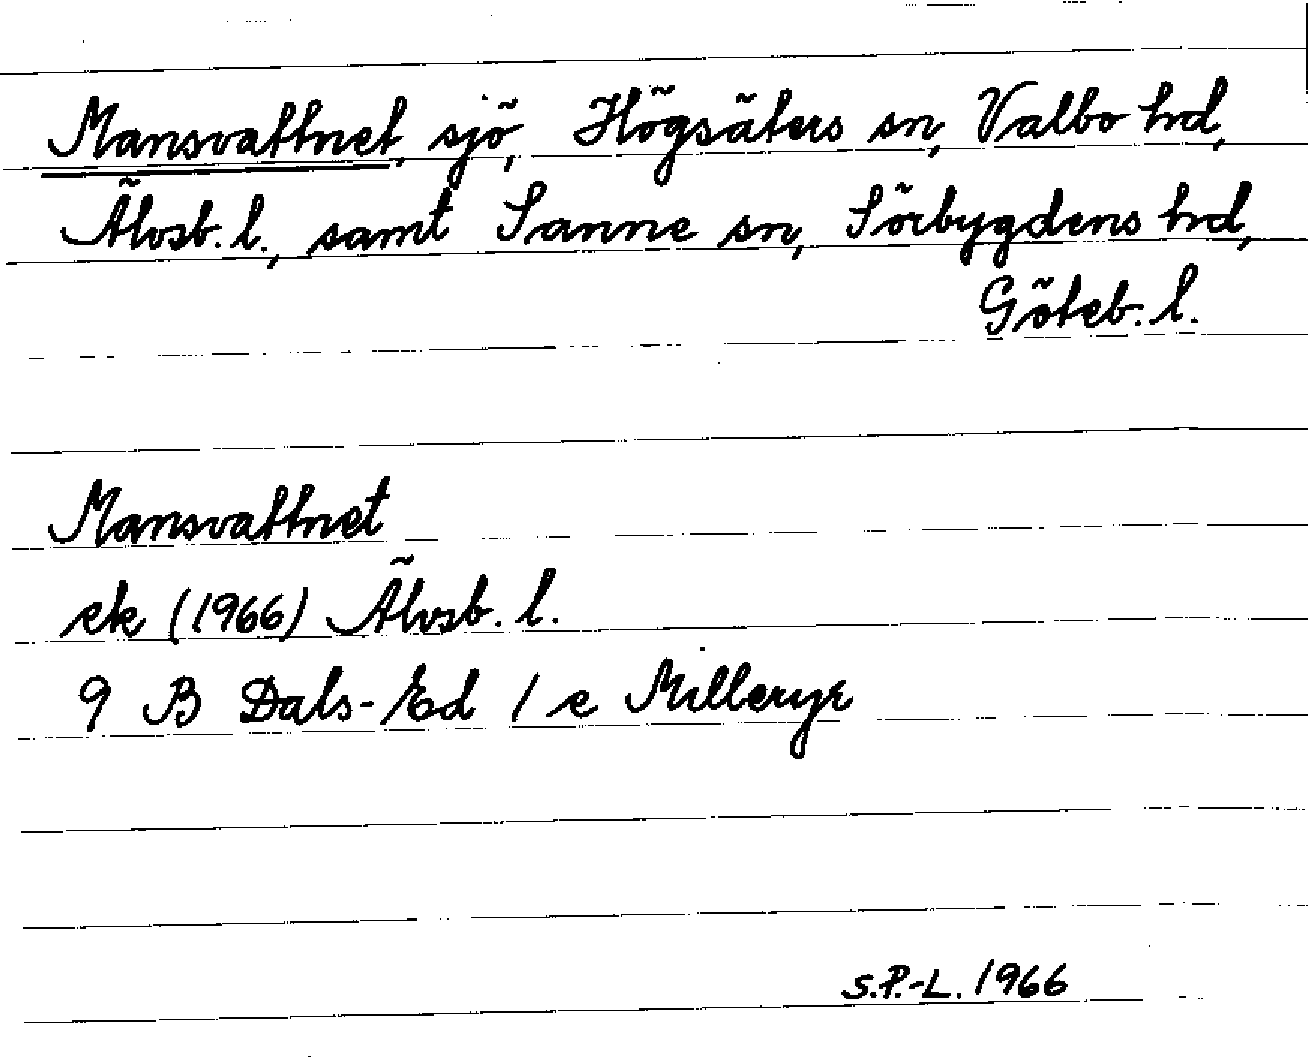 Mansvattnet, sjö, Högsäters sn, Valbo hd,
Älvsb. l., samt Sanne sn, Sörbygdens hd,
Göteb. l.
Mansvattnet
ek (1966) Älvsb. l.
9 B Dals-Ed 1 e Milleryr
S.P.-L. 1966